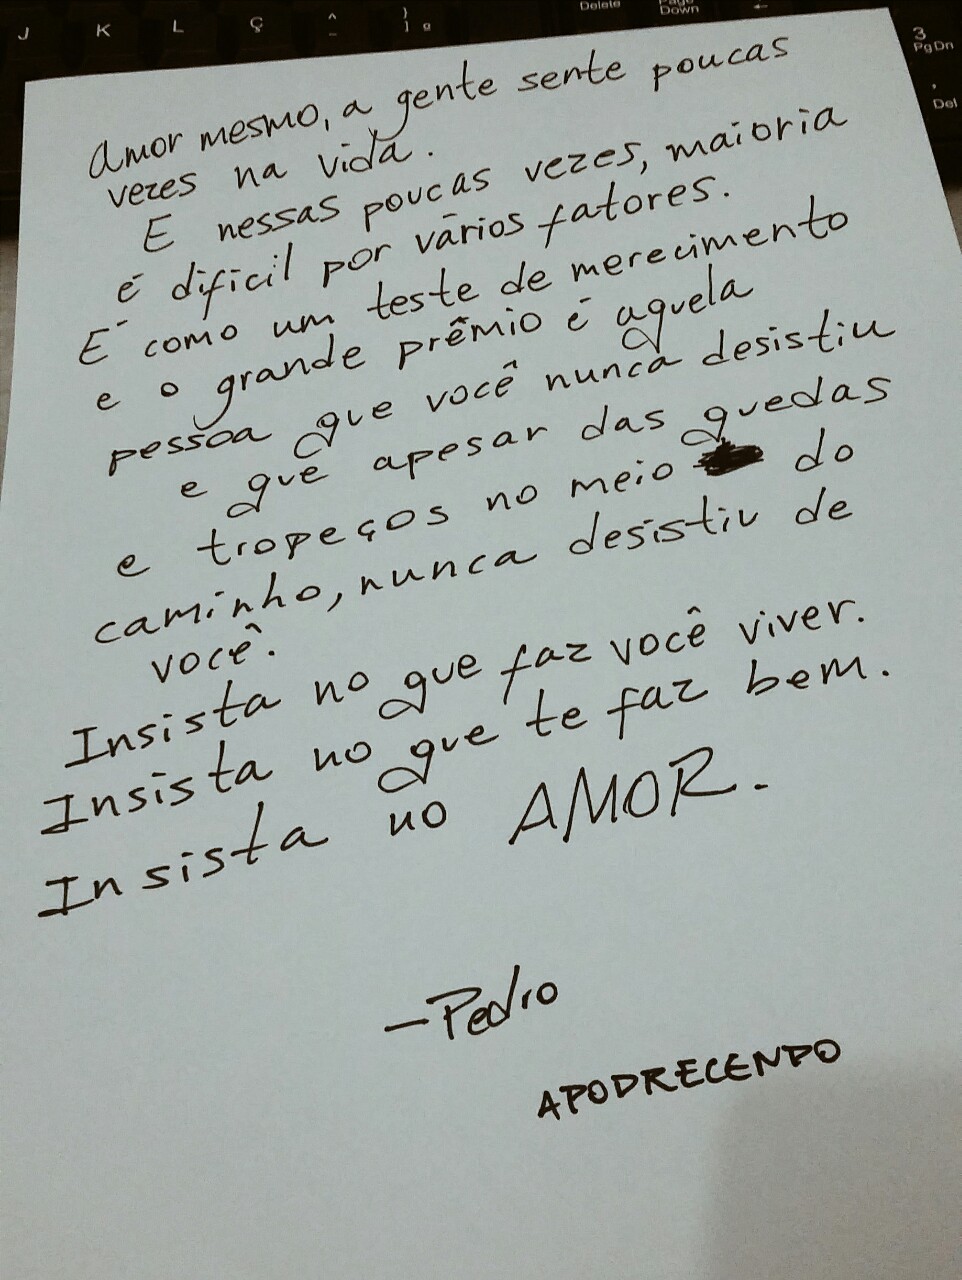 J K L Ç ^ ~ } ] º Delete Page Down ←
3 PgDn
, Del
Amor mesmo, a gente sente poucas
vezes na vida.
E nessas poucas vezes, maioria
é dificil por vários fatores.
É como um teste de merecimento
e o grande prêmio é aquela
pessoa que você nunca desistiu
e que apesar das quedas
e tropeços no meio do
caminho, nunca desistiu de
você.
Insista no que faz você viver.
Insista no que te faz bem.
Insista no AMOR.
—Pedro
APODRECENDO